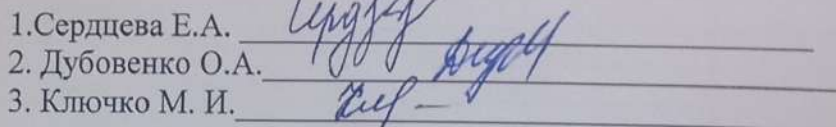 1.Сердцева Е.А.
2. Дубовенко О.А.
3. Ключко М. И.